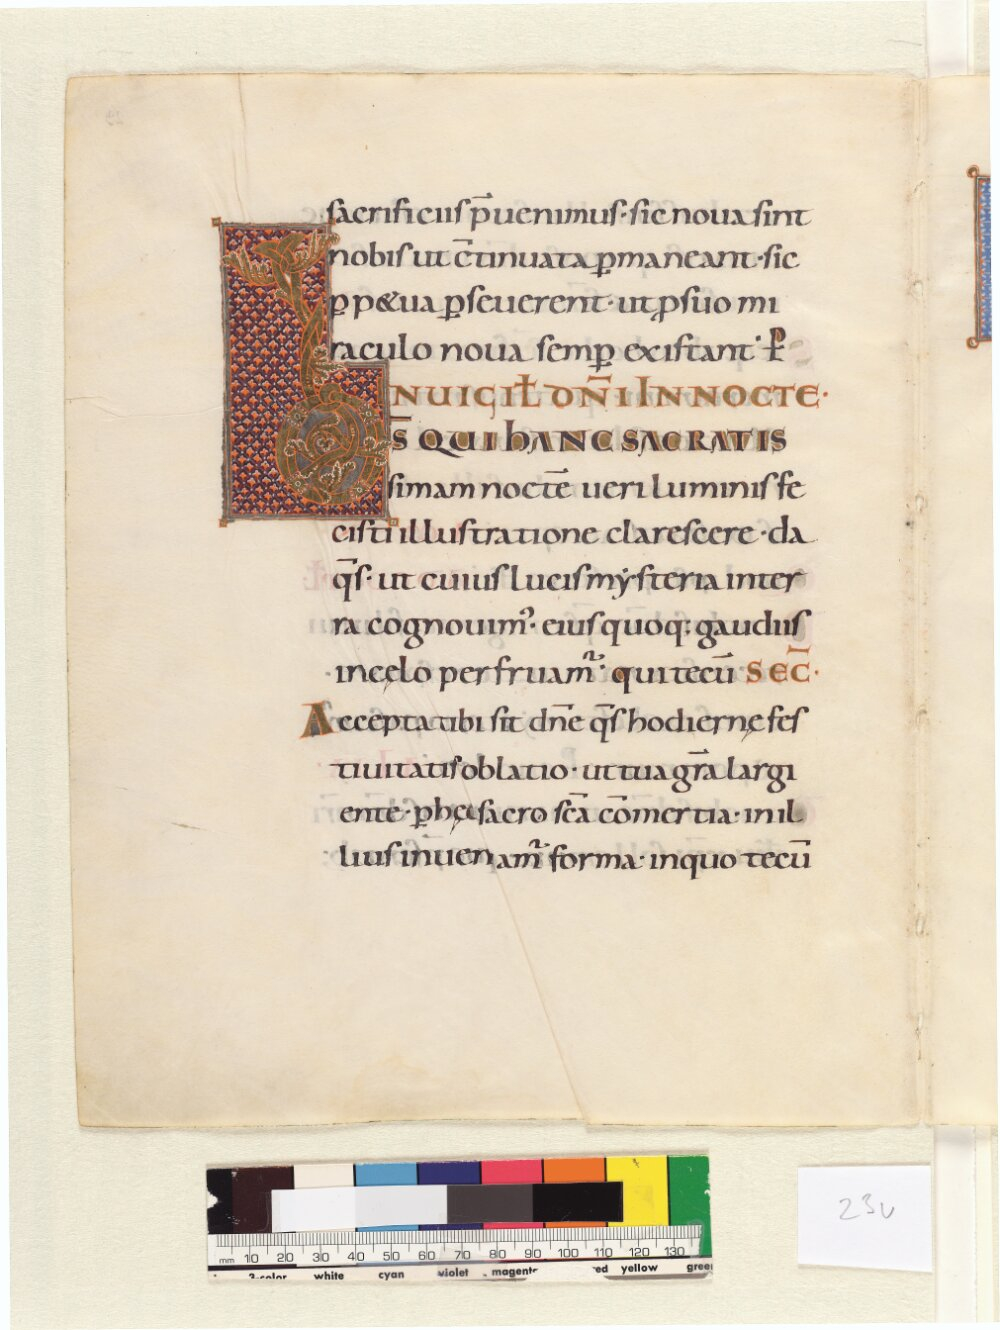 sacrificiis p̄uenimus· sic noua sint
nobis ut c̄tinuata ꝑmaneant· sic
ꝑp&ua ꝑseuerent· ut ꝓ suo mi
raculo noua semꝑ existant· ꝑ
IN UIGIƚ DN̄I IN NOCTE·
D̄S QUI hANC SACRATIS
simam nocte̅ ueri luminis fe
cisti illustratione clarescere· da
q̄s· ut cuius lucis mẏsteria in ter
ra cognouim᾿· eius quoq; gaudiis
in cęlo perfruam᷑· qui tecū SEC̄·
Accepta tibi sit dn̄e q̄s hodiernę fes
tiuitatis oblatio· ut tua gr̄a largi
ente· ꝑ hęc sacro sc̄a cōmertia· in il
lius inueniam᷑ forma· in quo tecū
23v
mm 10 20 30 40 50 60 70 80 90 100 110 120 130
3-color white cyan violet magenta red yellow green